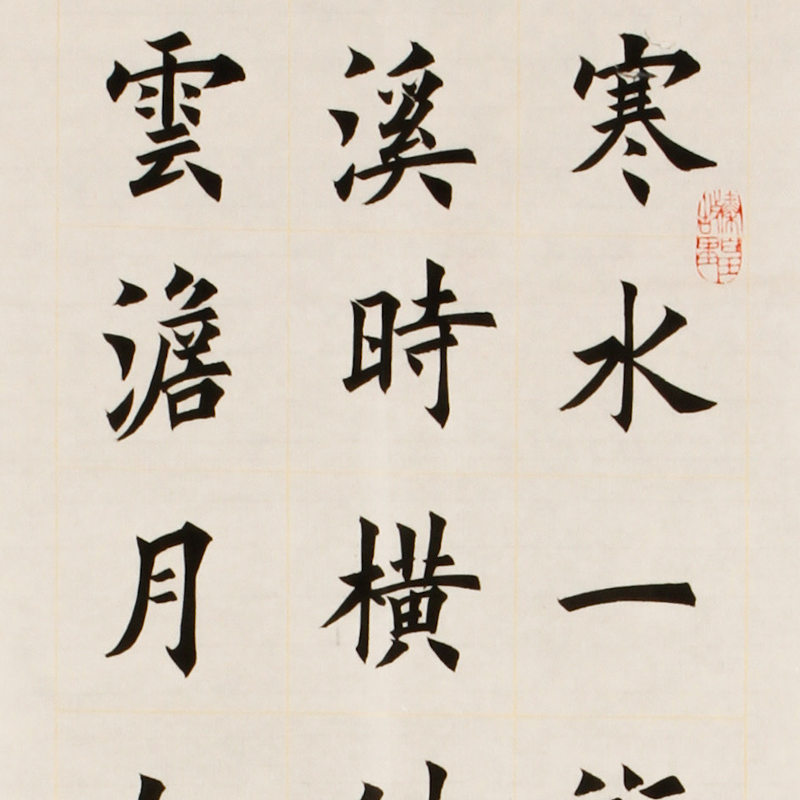 寒水一
溪時橫
雲澹月